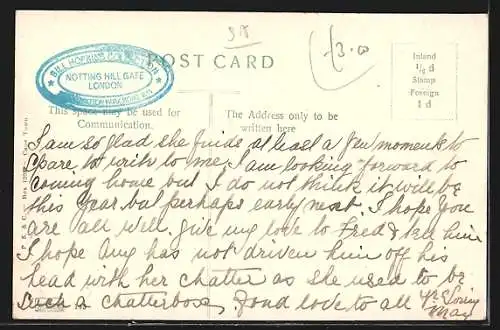 38
£3.00
BILL HOPKINS COLLECTION
NOTTING HILL GATE
LONDON
POST CARD
Inland
½ d
Stamp
Foreign
1 d
This space may be used for
Communication.
The Address only to be
written here
I am so glad she finds at least a few moments to
spare to write to me. I am looking forward to
coming home but I do not think it will be
this year but perhaps early next. I hope you
are all well. Give my love to Fred & tell him
I hope Amy has not driven him off his
head with her chatter as she used to be
such a chatterbox. Fond love to all Yr Loving
May